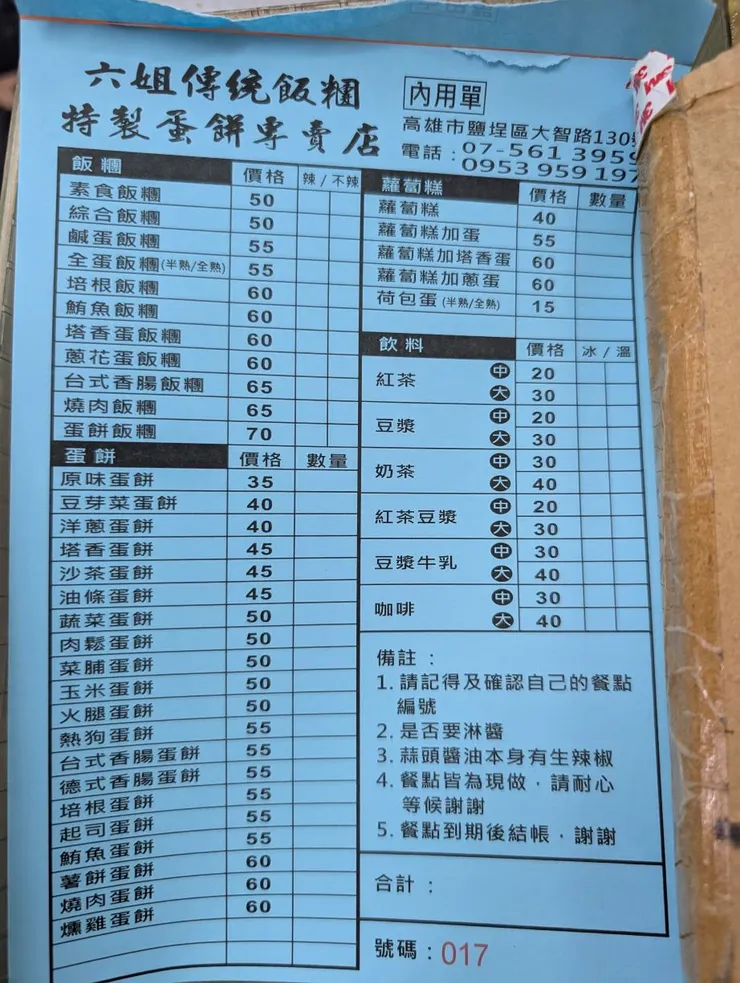 六姐傳統飯糰
特製蛋餅專賣店
內用單
高雄市鹽埕區大智路130號
電話：07-561 3959
0953 959 197
飯糰 價格 辣/不辣
素食飯糰 50
綜合飯糰 50
鹹蛋飯糰 55
全蛋飯糰(半熟/全熟) 55
培根飯糰 60
鮪魚飯糰 60
塔香蛋飯糰 60
蔥花蛋飯糰 60
台式香腸飯糰 65
燒肉飯糰 65
蛋餅飯糰 70
蛋餅 價格 數量
原味蛋餅 35
豆芽菜蛋餅 40
洋蔥蛋餅 40
塔香蛋餅 45
沙茶蛋餅 45
油條蛋餅 45
蔬菜蛋餅 50
肉鬆蛋餅 50
菜脯蛋餅 50
玉米蛋餅 50
火腿蛋餅 50
熱狗蛋餅 55
台式香腸蛋餅 55
德式香腸蛋餅 55
培根蛋餅 55
起司蛋餅 55
鮪魚蛋餅 55
薯餅蛋餅 60
燒肉蛋餅 60
燻雞蛋餅 60
蘿蔔糕 價格 數量
蘿蔔糕 40
蘿蔔糕加蛋 55
蘿蔔糕加塔香蛋 60
蘿蔔糕加蔥蛋 60
荷包蛋(半熟/全熟) 15
飲料 價格 冰/溫
紅茶 中 20
大 30
豆漿 中 20
大 30
奶茶 中 30
大 40
紅茶豆漿 中 20
大 30
豆漿牛乳 中 30
大 40
咖啡 中 30
大 40
備註：
1. 請記得及確認自己的餐點
編號
2. 是否要淋醬
3. 蒜頭醬油本身有生辣椒
4. 餐點皆為現做，請耐心
等候謝謝
5. 餐點到期後結帳，謝謝
合計：
號碼：017